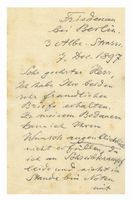 Friedenau
bei Berlin.
3 Albe-Strasse
7. Dec. 1897
Sehr geehrter Herr,
Ich habe Ihre beiden
freundlichen
Briefe erhalten.
Zu meinem Bedauern
kann ich Ihren
Wunsch augenblicklich
nicht erfüllen, da
ich an Schreibkrampf
leide und nicht im
Stande bin Noten
mit